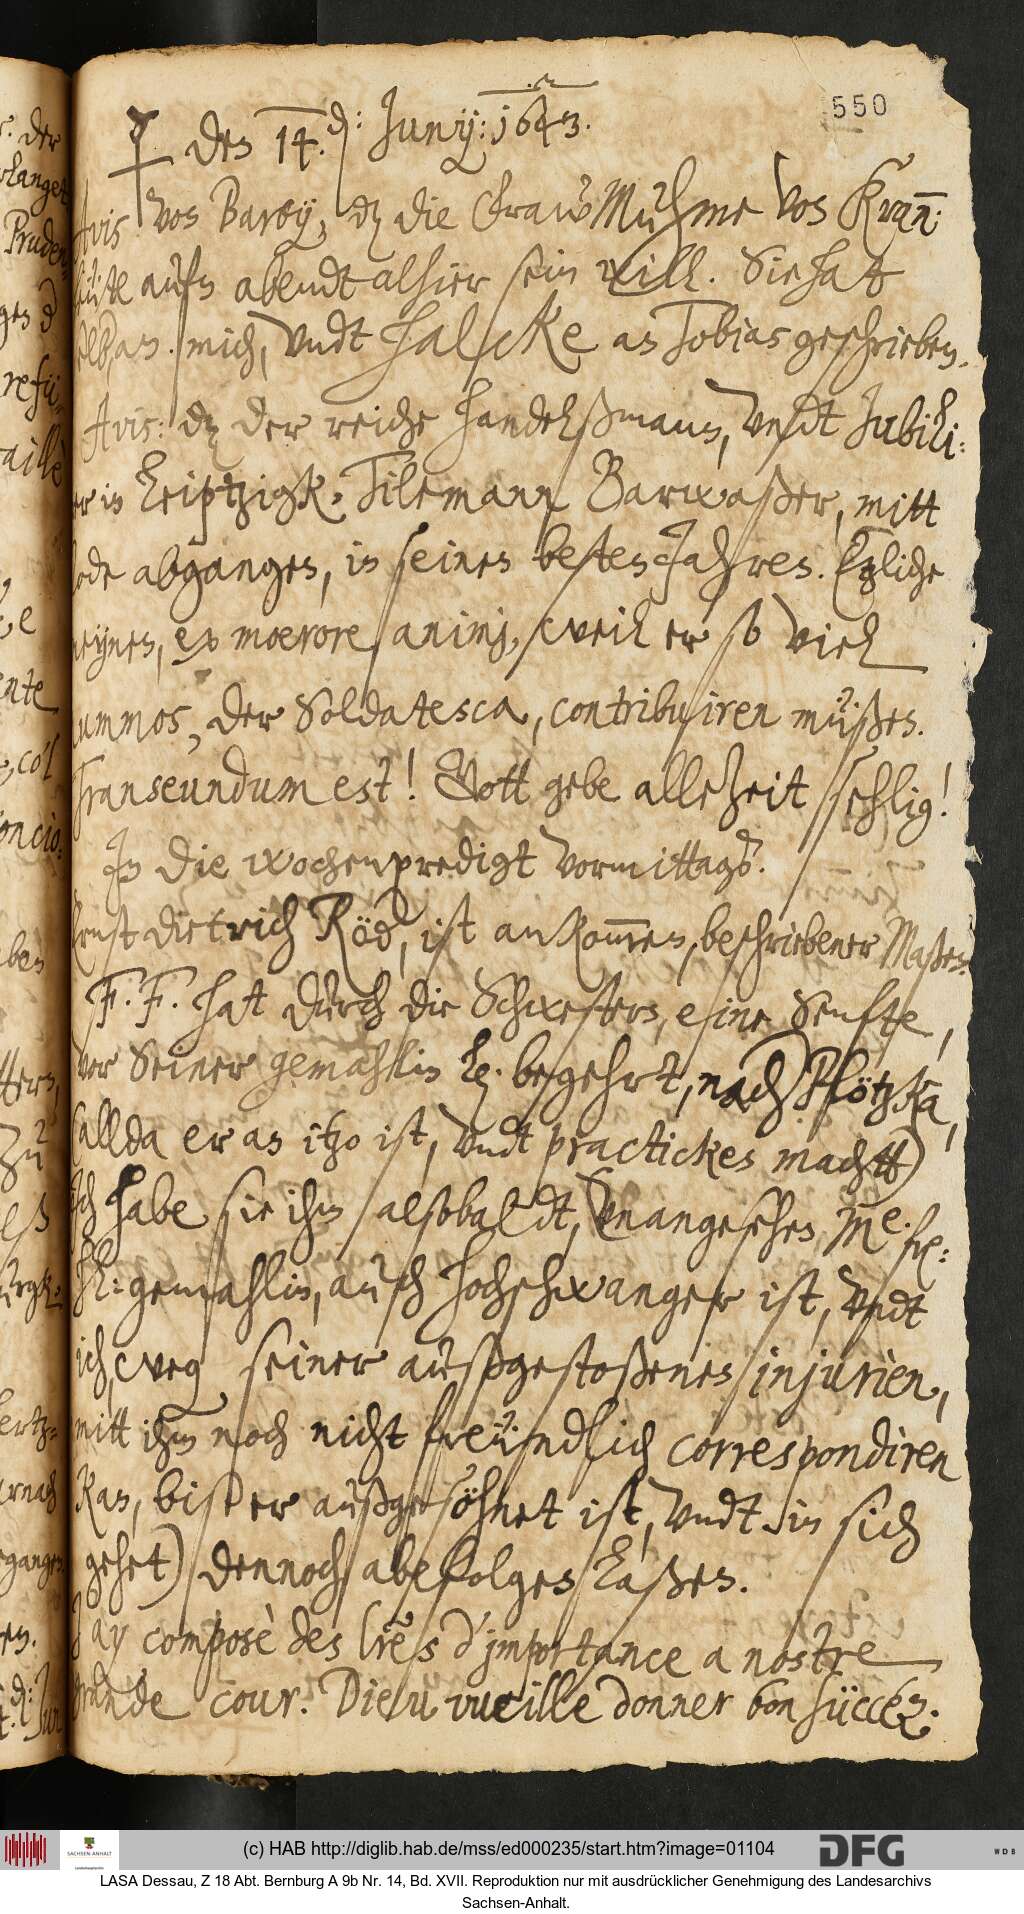 550
☿ den 14. d: Junij: 1643.
Avis von Barby, dz die Fraw Muhme von Kran:
aufn abendt alhier sein will. Sie hat
mich, vndt Halcke an Tobias geschrieben.
Avis: dz der reiche handelßmann, vndt Jubili:
er in Leiptzigk, Tilemann Barwaßer, mitt
tode abgangen, in seinen besten Jahren. Etzliche
meynen, ex moerore animj, weil er so viel
nummos, der Soldatesca, contribuiren müßen.
Transeundum est! Gott gebe allezeit sehlig!
In die wochenpredigt vormittags.
Ernst Dietrich Röd, ist ankom̄en, beschriebener Maßen.
F. F. hat durch die Schwestern, eine Senfte,
vor Seiner gemahlin L. begehrt, nach Plötzka,
(allda er an itzo ist, vndt practicken machtt)
Ich habe sie ihm alsobaldt, (vnangesehen, Me. fr:
H: gemahlin, auch hochschwanger ist, vndt
ich, weg. seiner außgestoßenen injurien,
mitt ihm noch nicht freündlich correspondiren
kan, biß er außgesöhnet ist, vndt in sich
gehet) dennoch abefolgen laßen.
J'ay composè des lrẽs d'jmportance a nostre
grande cour. Dieu vueille donner bon süccéz.
(c) HAB http://diglib.hab.de/mss/ed000235/start.htm?image=01104
SACHSEN-ANHALT
DFG
WDB
LASA Dessau, Z 18 Abt. Bernburg A 9b Nr. 14, Bd. XVII. Reproduktion nur mit ausdrücklicher Genehmigung des Landesarchivs
Sachsen-Anhalt.